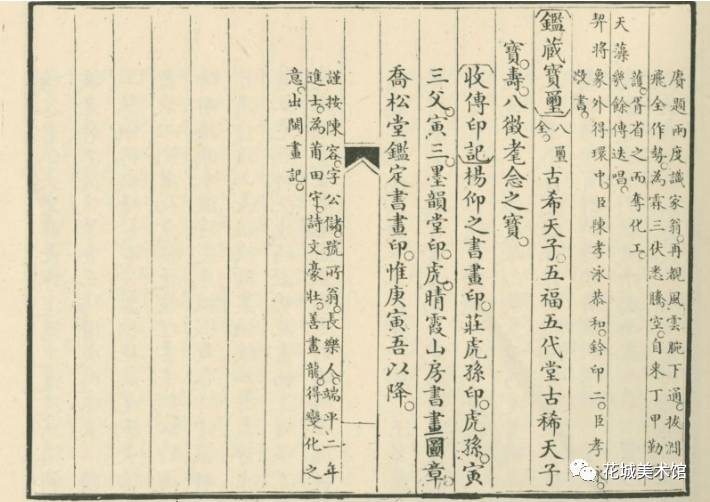 賡題兩度識家翁。再覩風雲腕下通。拔淵
全作勢。為霖三伏悉騰空。自来丁甲勤
護。胥省之而奪化工。
天藻幾餘傳迭唱。
契將象外得環中。臣陳孝泳恭和。鈐印二。臣孝。
敬書。
鑑藏寶璽 八璽全。古希天子。五福五代堂古稀天子
寶。壽。八徵耄念之寶。
收傳印記 楊仰之書畫印。莊虎孫印。虎孫。寅
三父。寅三。墨韻堂印。虎。晴霞山房書畫圖章。
喬松堂鑑定書畫印。惟庚寅吾以降。
謹按陳容。字公儲。號所翁。長樂人。端平二年
進士。為莆田守。詩文豪壯。善畫龍。得變化之
意。出閩畫記。
花城美术馆